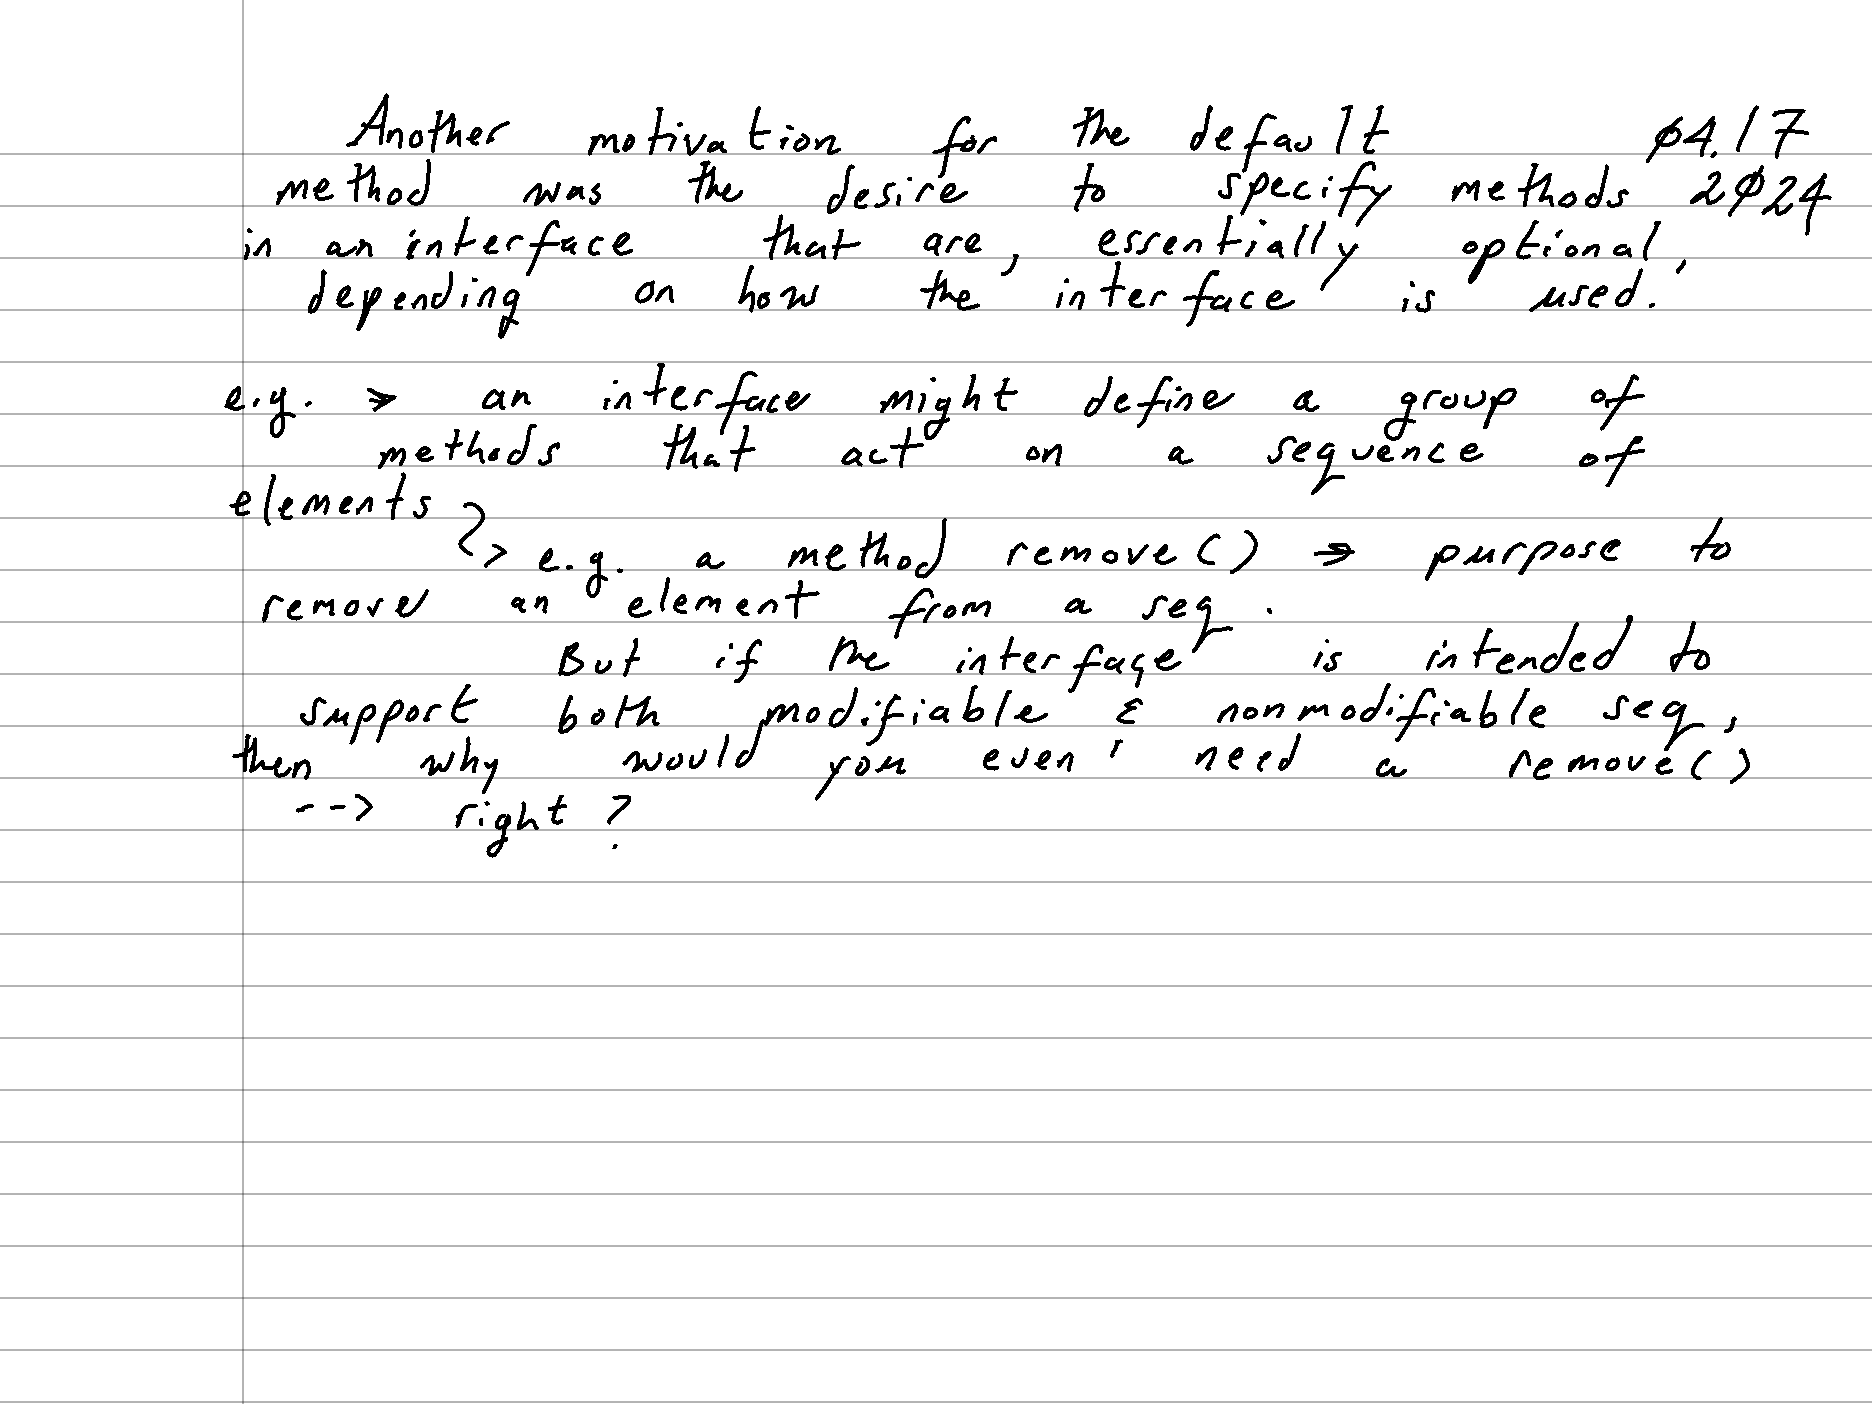 Another motivation for the default ø4.17
method was the desire to specify methods 2ø24
in an interface that are, essentially optional,
depending on how the interface is used.
e.g. → an interface might define a group of
methods that act on a sequence of
elements
↳ e.g. a method remove() → purpose to
remove an element from a seq.
But if the interface is intended to
support both modifiable & nonmodifiable seq,
then why would you even need a remove()
--> right?